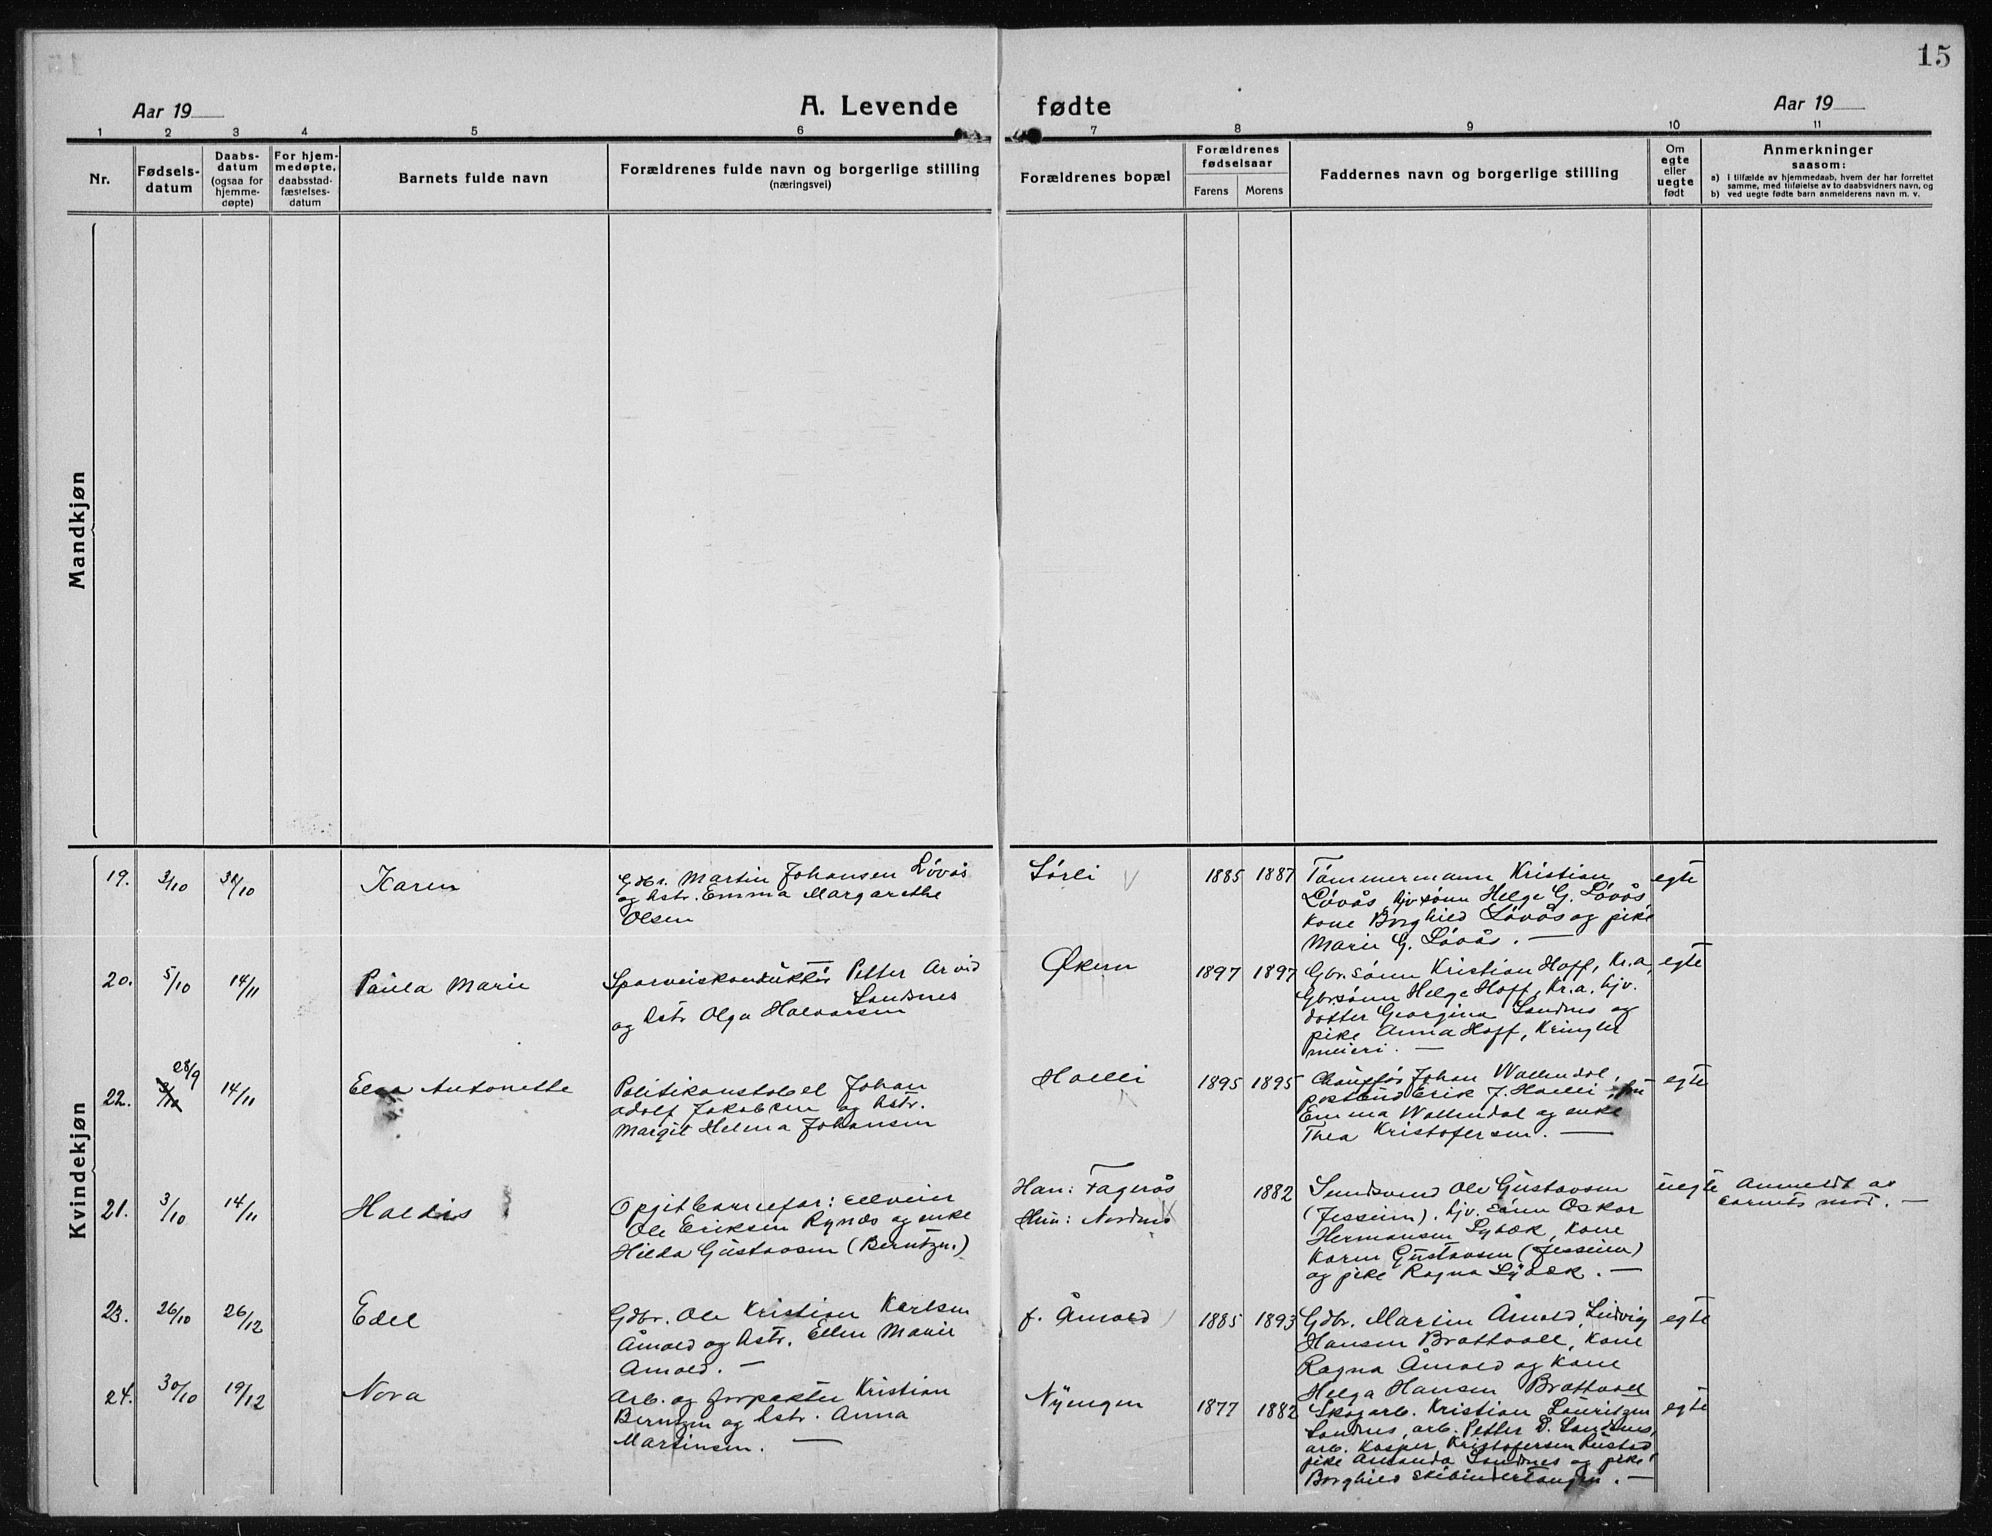 15
Aar 19
A. Levende fødte
Aar 19
1 2 3 4 5 6 7 8 9 10 11
Nr.
Fødsels-
datum
Daabs-
datum
(ogsaa for
hjemme-
døpte)
For hjem-
medøpte,
daabsstad-
fæstelses-
datum
Barnets fulde navn
Forældrenes fulde navn og borgerlige stilling
(næringsvei)
Forældrenes bopæl
Forældrenes
fødselsaar
Farens Morens
Faddernes navn og borgerlige stilling
Om
egte
eller
uegte
født
Anmerkninger
saasom:
a) I tilfælde av hjemmedaab, hvem der har forrettet
samme, med tilføielse av to daabsvidners navn, og
b) ved uegte fødte barn anmelderens navn m. v.
Mandkjøn
Kvindekjøn
19. 3/10 /10 Karen
Gdbr. Martin Johansen Løvås
og hstr. Emma Margarethe
Olsen
Sørli
1885 1887
Tømmermann Kristian
Løvås, hjv. sønn Helge G. Løvås,
kone Borghild Løvås og pike
Marie G. Løvås. —
egte
20. 5/10 14/11 Paula Marie
Sporveiskonduktør Petter Arvid
Sandnes
og hstr Olga Halvorsen
Økern
1897 1897
Gbr.sønn Kristian Hoff, Kr.a,
Gbrsønn Helge Hoff, Kr.a. hjv.
dotter Georgina Sandnes og
pike Anna Hoff, Kringler
meieri. —
egte
22. 28/9 14/11 Elsa Antonette
Politikonstabel Johan
Adolf Jakobsen og hstr.
Margit Helena Johansen
Haelli
1895 1895
Chauffør Johan Wallendal,
postbud Erik J. Haelli, fru
Emma Wallendal og enke
Thea Kristofersen. —
egte
21. 3/10 14/11 Haldis
Opgit barnefar: elleveier
Ole Eriksen Rynes og enke
Hilda Gustavsen (Berntzn.)
Han: Fagerås
Hun: Nordnes
1882
Sundsvend Ole Gustavsen
(Jesseim), hjv. sønn Oskar
Hermansen Lybæk, kone
Karen Gustavsen (Jesseim)
og pike Ragna Lybæk. —
uegte
Anmeldt av
barnets mor. —
23. 26/10 26/12 Edel
Gdbr. Ole Kristian Karlsen
Årnold og hstr. Ellen Marie
Arnold. —
f. Årnold
1885 1893
Gdbr. Martin Årnold, Ludvig
Hansen Brattvoll, kone
Ragna Årnold og kone
Helga Hansen Brattvoll
egte
24. 30/10 19/12 Nora
Arb. og forpakter Kristian
Berntzen og hstr. Anna
Martinsen. —
Nyengen
1877 1882
Skogarb. Kristian Lauritzen
Sandnes, arb. Petter D. Sandnes,
arb. Kasper Kristofersen Rustad
pike Amanda Sandnes og pike
Borghild Skibindertangen. —
egte